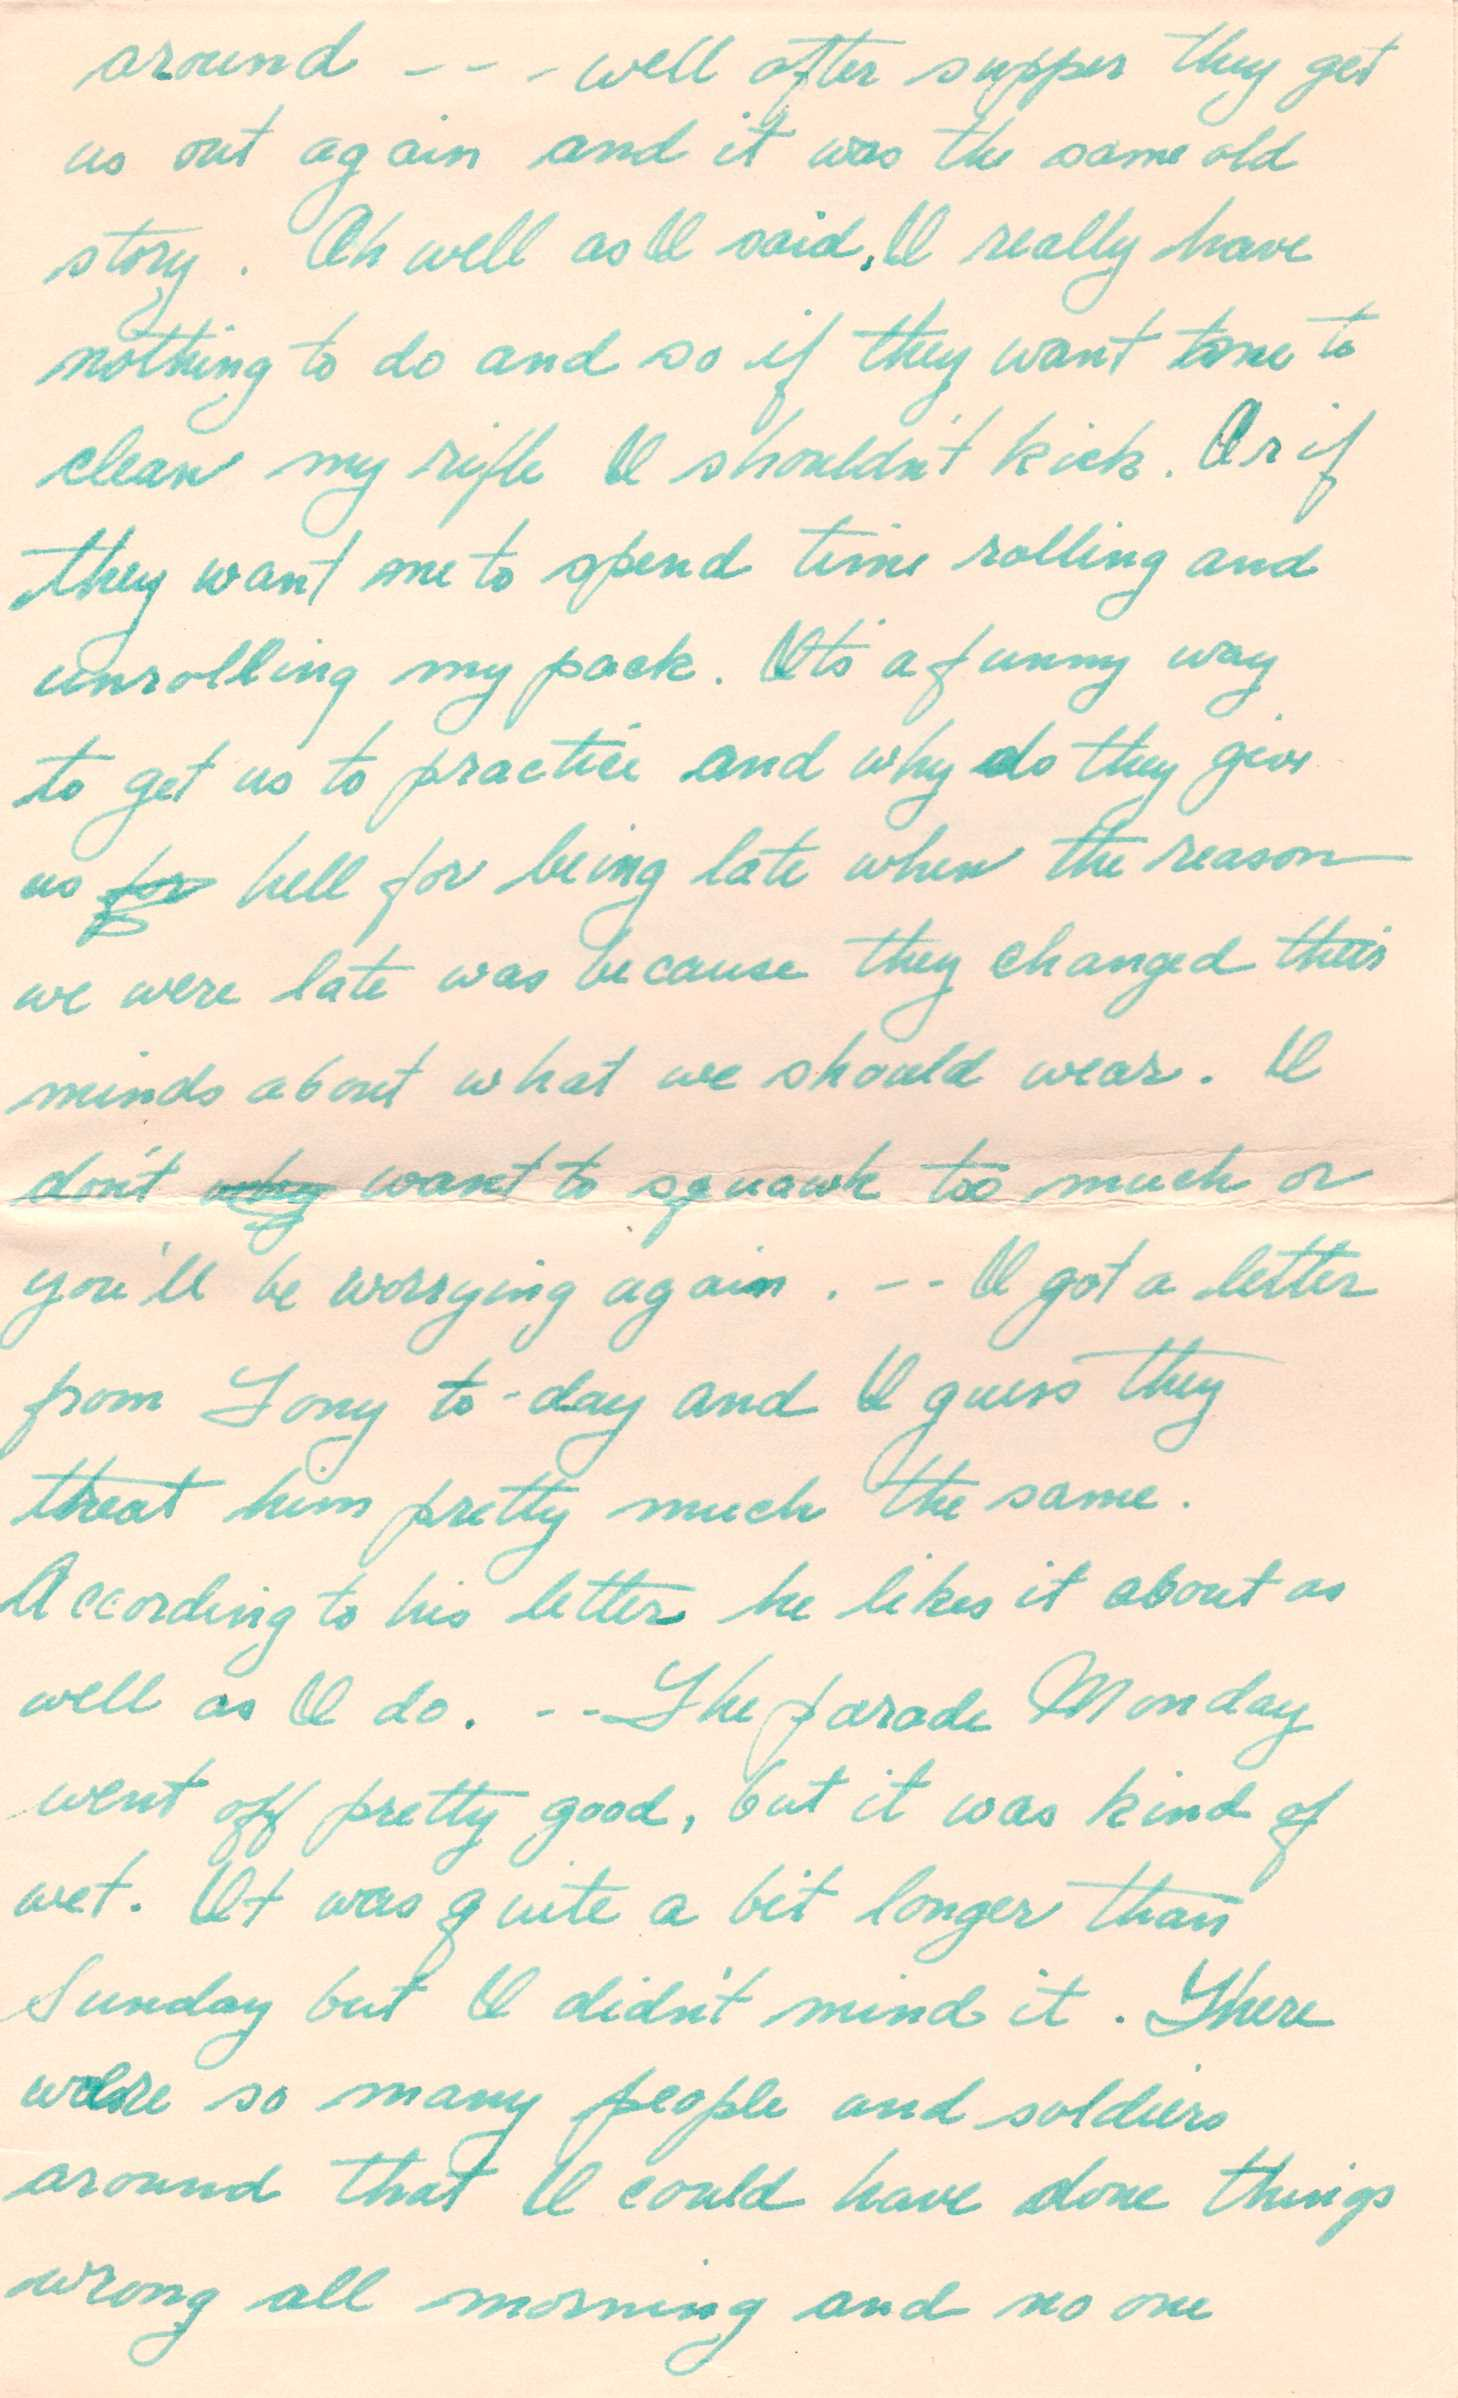 around --- well after supper they get
us out again and it was the same old
story. Oh well as I said, I really have
nothing to do and so if they want me to
clean my rifle I shouldn't kick. Or if
they want me to spend time rolling and
unrolling my pack. It's a funny way
to get us to practice and why do they give
us for hell for being late when the reason
we were late was because they changed their
minds about what we should wear. I
don't why want to squawk too much or
you'll be worrying again. -- I got a letter
from Tony to-day and I guess they
threat him pretty much the same.
According to his letter he likes it about as
well as I do. -- The parade Monday
went off pretty good, but it was kind of
wet. It was quite a bit longer than
Sunday but I didn't mind it. There
were so many people and soldiers
around that I could have done things
wrong all morning and no one